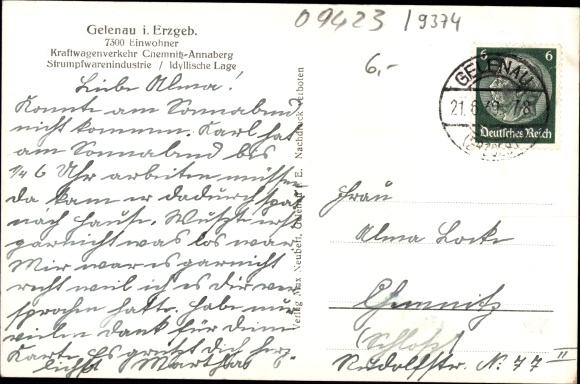 09423 / 9374
Gelenau i. Erzgeb.
7300 Einwohner
Kraftwagenverkehr Chemnitz-Annaberg
Strumpfwarenindustrie / Idyllische Lage
6,-
Liebe Alma!
Konnte am Sonnabend
nicht kommen. Karl hat
am Sonnabend bis
1/4 6 Uhr arbeiten müssen
da kam er dadurch spät
nach Hause. Wußte erst
garnicht was los war.
Mir war es garnicht
recht weil ich es dir ver
sprochen hatte. Habe nun
vielen Dank für deine
Karte. Es grüßt dich herz-
lichst Martha
Verlag Max Neubert, Gelenau i. E. Nachdruck verboten
6 6
Deutsches Reich
GELENAU
21. 6. 7-8
(ERZGEB.)
Frau
Alma Locke
Chemnitz
(Schloß)
Rudolfstr. N: 77 II